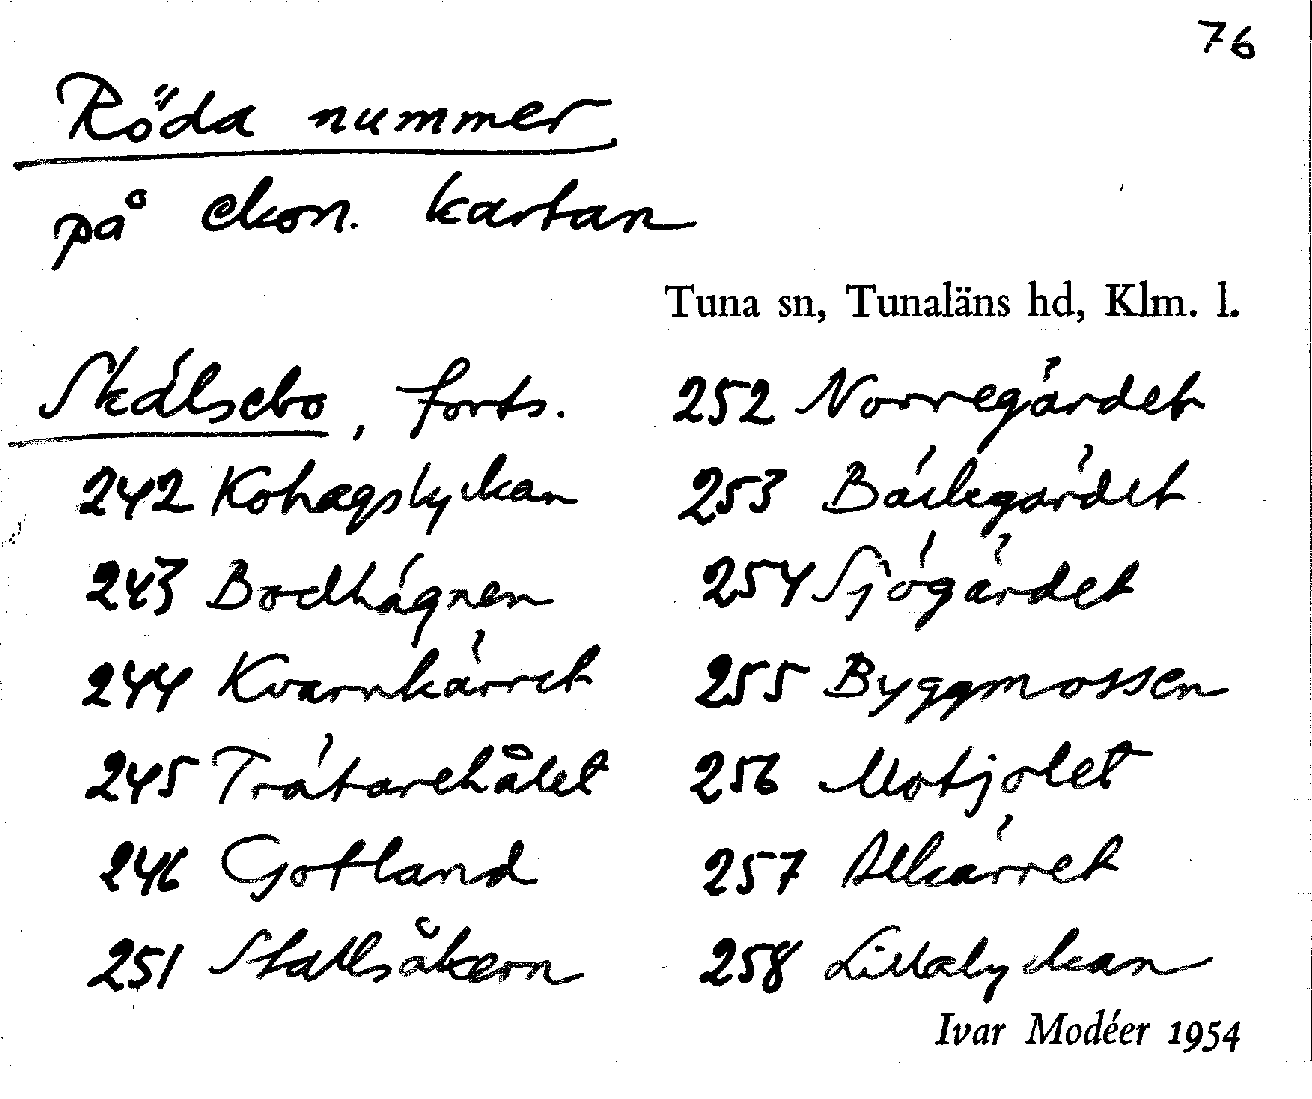 76
Röda nummer
på ekon. kartan
Tuna sn, Tunaläns hd, Klm. l.
Skälsebo, forts.
242 Kohagslyckan
243 Bodhägnen
244 Kvarnkärret
245 Trätarehålet
246 Gotland
251 Stallsåkern
252 Norregärdet
253 Bäckegärdet
254 Sjögärdet
255 Byggmossen
256 Motjolet
257 Alkärret
258 Lillalyckan
Ivar Modéer 1954